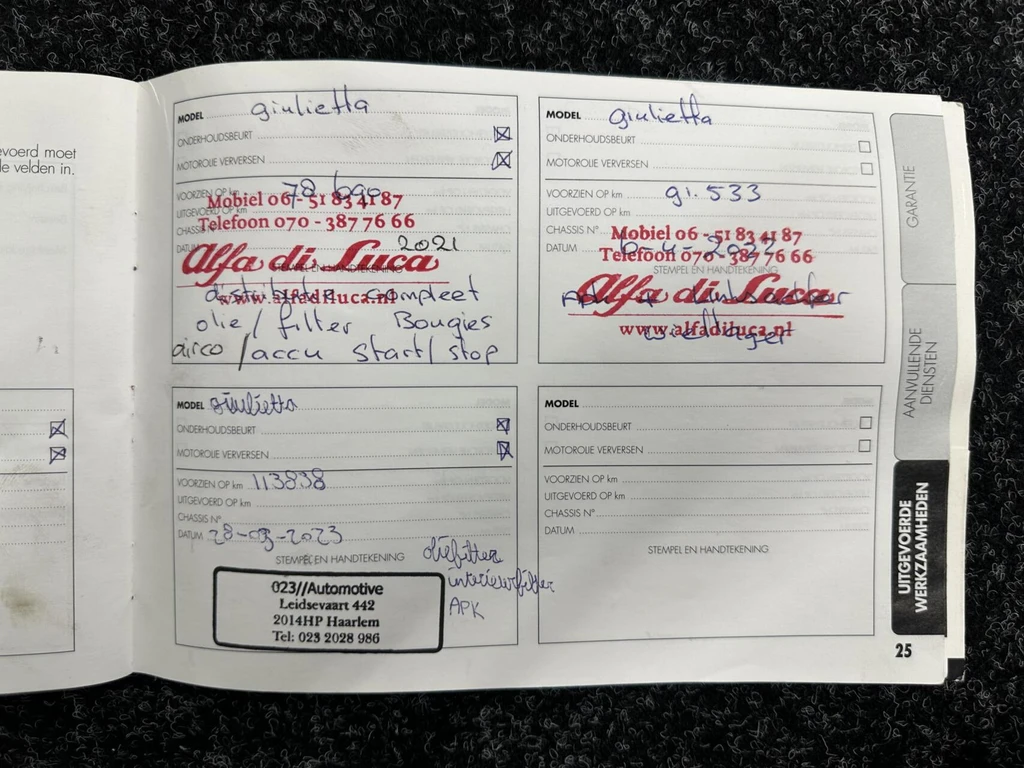 evoerd moet
le velden in.
MODEL giulietta
ONDERHOUDSBEURT
MOTOROLIE VERVERSEN
VOORZIEN OP km 78
Mobiel 06 - 51 83 41 87
UITGEVOERD OP km
Telefoon 070 - 387 76 66
CHASSIS
DATUM 2021
Alfa di Luca
STEMPEL EN HANDTEKENING
www.alfadiluca.nl
compleet
olie/filter Bougies
airco/accu start/stop
MODEL giulietta
ONDERHOUDSBEURT
MOTOROLIE VERVERSEN
VOORZIEN OP km 91.533
UITGEVOERD OP km
CHASSIS N°
Mobiel 06 - 51 83 41 87
DATUM 2022
Telefoon 070 - 387 76 66
STEMPEL EN HANDTEKENING
Alfa di Luca
www.alfadiluca.nl
MODEL giulietta
ONDERHOUDSBEURT
MOTOROLIE VERVERSEN
VOORZIEN OP km 113838
UITGEVOERD OP km
CHASSIS N°
DATUM 28-03-2023
STEMPEL EN HANDTEKENING
oliefilter
interieurfilter
APK
023//Automotive
Leidsevaart 442
2014HP Haarlem
Tel: 023 2028 986
MODEL
ONDERHOUDSBEURT
MOTOROLIE VERVERSEN
VOORZIEN OP km
UITGEVOERD OP km
CHASSIS N°
DATUM
STEMPEL EN HANDTEKENING
GARANTIE
AANVULLENDE
DIENSTEN
UITGEVOERDE
WERKZAAMHEDEN
25